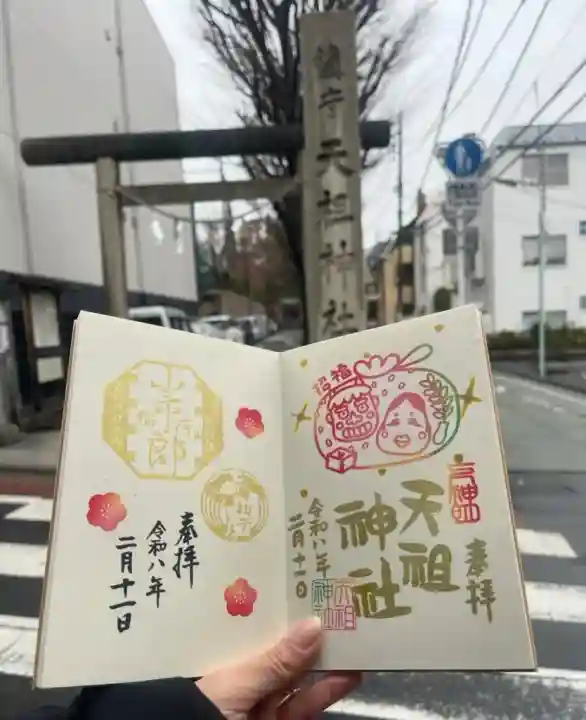 鎮守天祖神社
招福
奉拝
天祖
神社
令和八年
二月十一日
天祖
神社
奉拝
令和八年
二月十一日